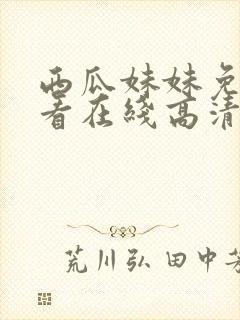 西瓜妹妹免
看在线高清
荒川弘 田中芳